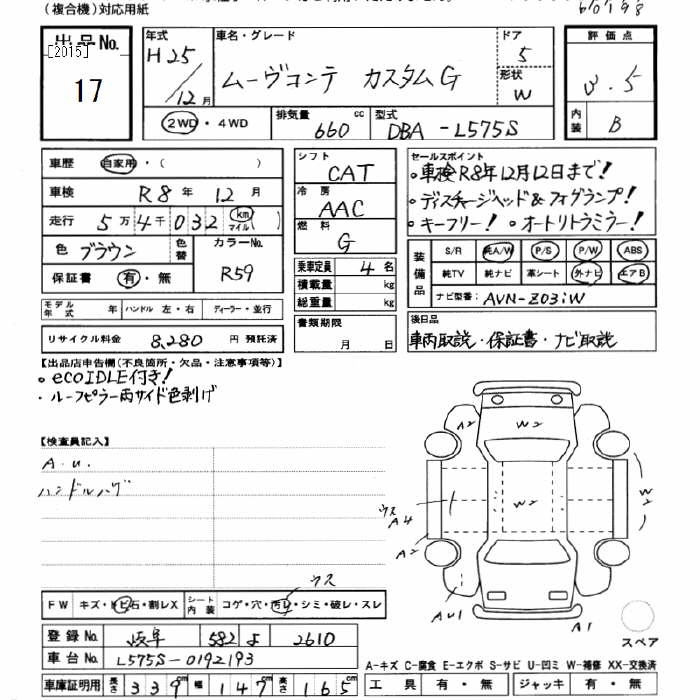 (複合機)対応用紙
出品No. [2015] 17
年式 H25/12月
車名・グレード ムーヴコンテ カスタムG
ドア 5
形状 W
評価点 3.5
内装 B
2WD・4WD
排気量 660 cc
型式 DBA-L575S
車歴 自家用・( )
車検 R8年 12月
走行 5万4千032 km マイル( )
色 ブラウン 色替 カラーNo. R59
保証書 有・無
モデル年式 年 ハンドル 左・右 ディーラー・並行
リサイクル料金 8,280 円 預託済
シフト CAT
冷房 AAC
燃料 G
乗車定員 4名
積載量 kg
総重量 kg
書類期限 月 日
セールスポイント
。車検R8年12月12日まで!
。ディスチャージヘッド&フォグランプ!
。キーフリー! 。オートリトラミラー!
装備品 S/R 純A/W P/S P/W ABS
純TV 純ナビ 革シート 外ナビ エアB
ナビ型番: AVN-Z03iW
後日品
車内取説・保証書・ナビ取説
【出品店申告欄(不良箇所・欠品・注意事項等)】
。ecoIDLE付き!
・ルーフピラー両サイド色剥げ
【検査員記入】
A.u.
ハンドルハゲ
FW キズ・トビ石・割レX シート内装 コゲ・穴・汚レ・シミ・破レ・スレ
ウス
登録No. 岐阜 582 よ 2610
車台No. L575S-0192193
車庫証明用 長さ 339 幅 147 高さ 165 cm
A2 W2
W2 W2
ウス A4
A2
AU1 A1
スペア
A-キズ C-腐食 E-エクボ S-サビ U-凹ミ W-補修 XX-交換済
工具 有・無 ジャッキ 有・無